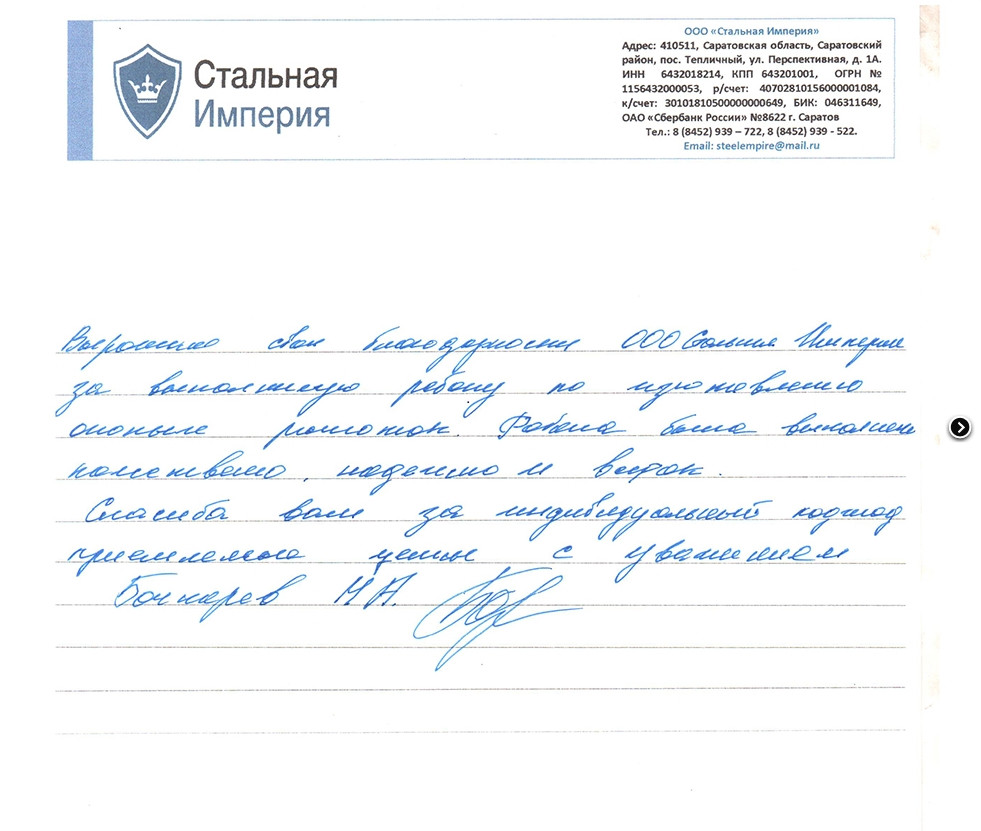 Стальная
Империя
ООО «Стальная Империя»
Адрес: 410511, Саратовская область, Саратовский
район, пос. Тепличный, ул. Перспективная, д. 1А.
ИНН 6432018214, КПП 643201001, ОГРН №
1156432000053, р/счет: 40702810156000001084,
к/счет: 30101810500000000649, БИК: 046311649,
ОАО «Сбербанк России» №8622 г. Саратов
Тел.: 8 (8452) 939 – 722, 8 (8452) 939 - 522.
Email: steelempire@mail.ru
Выражаю свои благодарности ООО Стальная Империя
за выполненную работу по изготовлению
решоток. Работа была выполнена
качествено, надежно и в срок.
Спасиба вам за индивидуальный подход
приемлемые цены с уважением
Бочкарев Н.А.